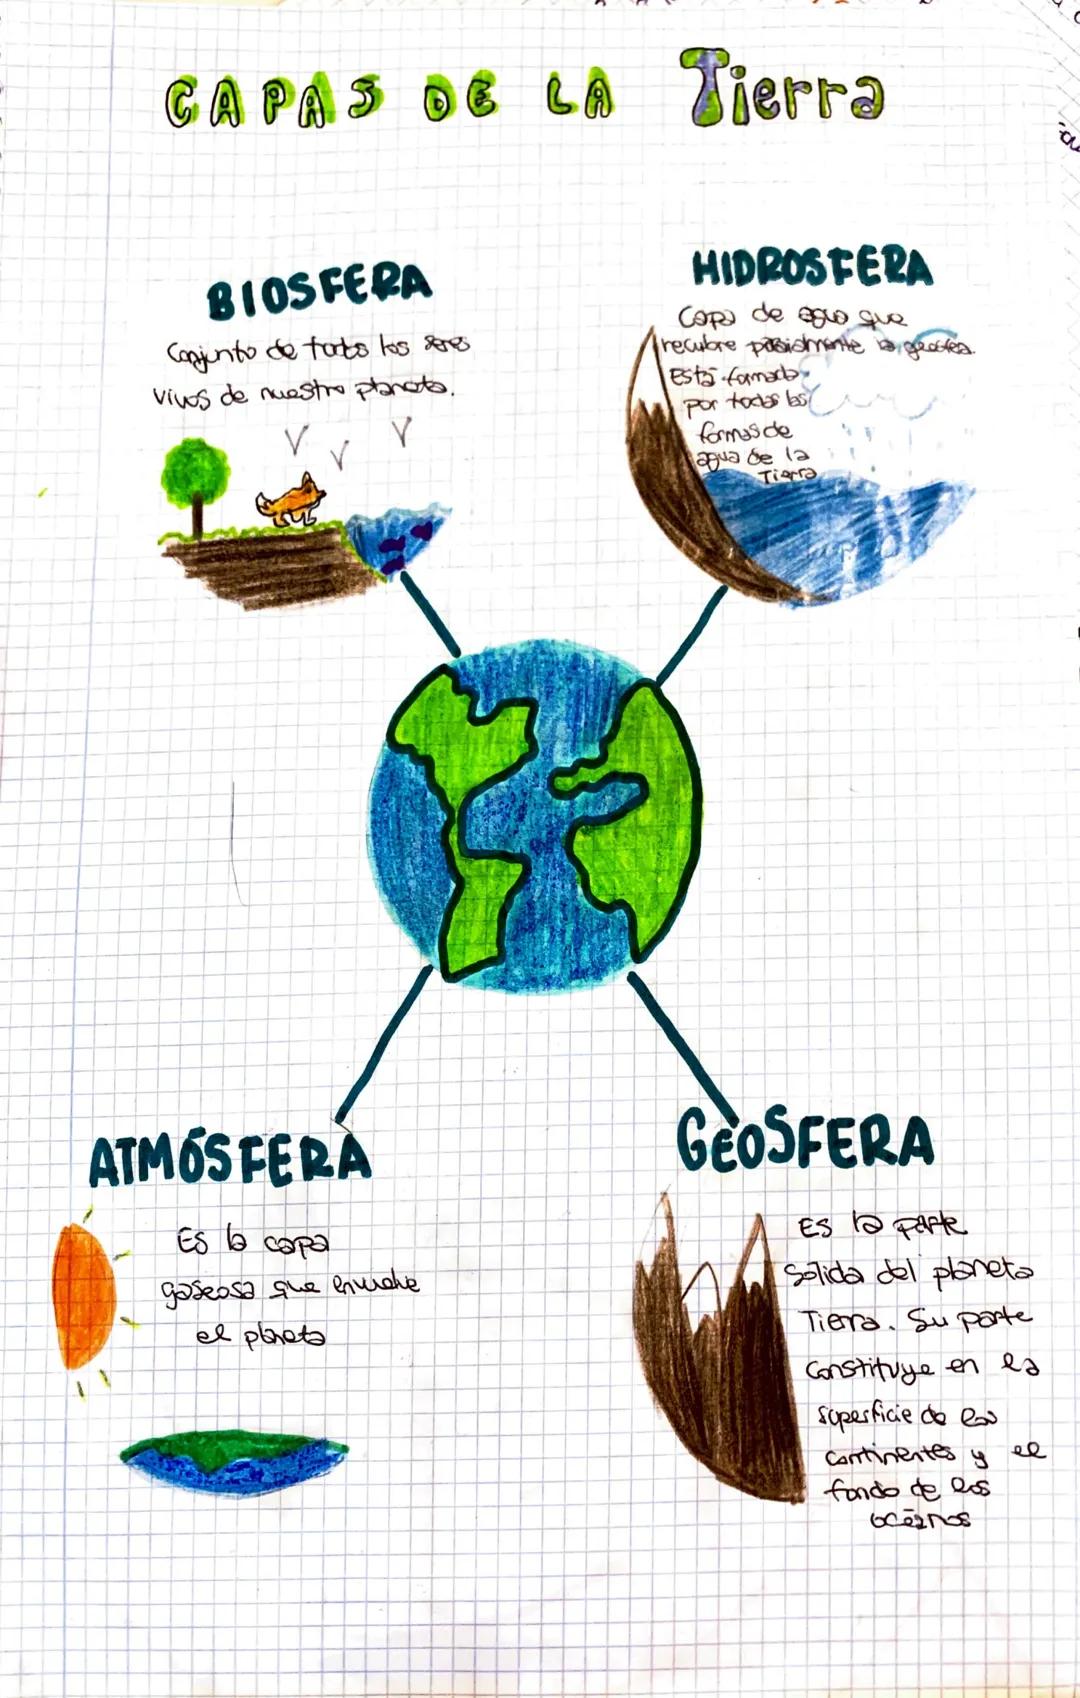 CAPAS DE LA Tierra
BIOSFERA
Conjunto de todos los seres
vivos de nuestro planeta.
HIDROSFERA
Capa de agua que
recubre parcialmente la geosfera.
Está formada
por todas las
formas de
agua de la
Tierra
ATMÓSFERA
Es la capa
gaseosa que envuelve
el planeta
GEOSFERA
Es la parte
sólida del planeta
Tierra. Su parte
constituye en la
superficie de los
continentes y el
fondo de los
océanos